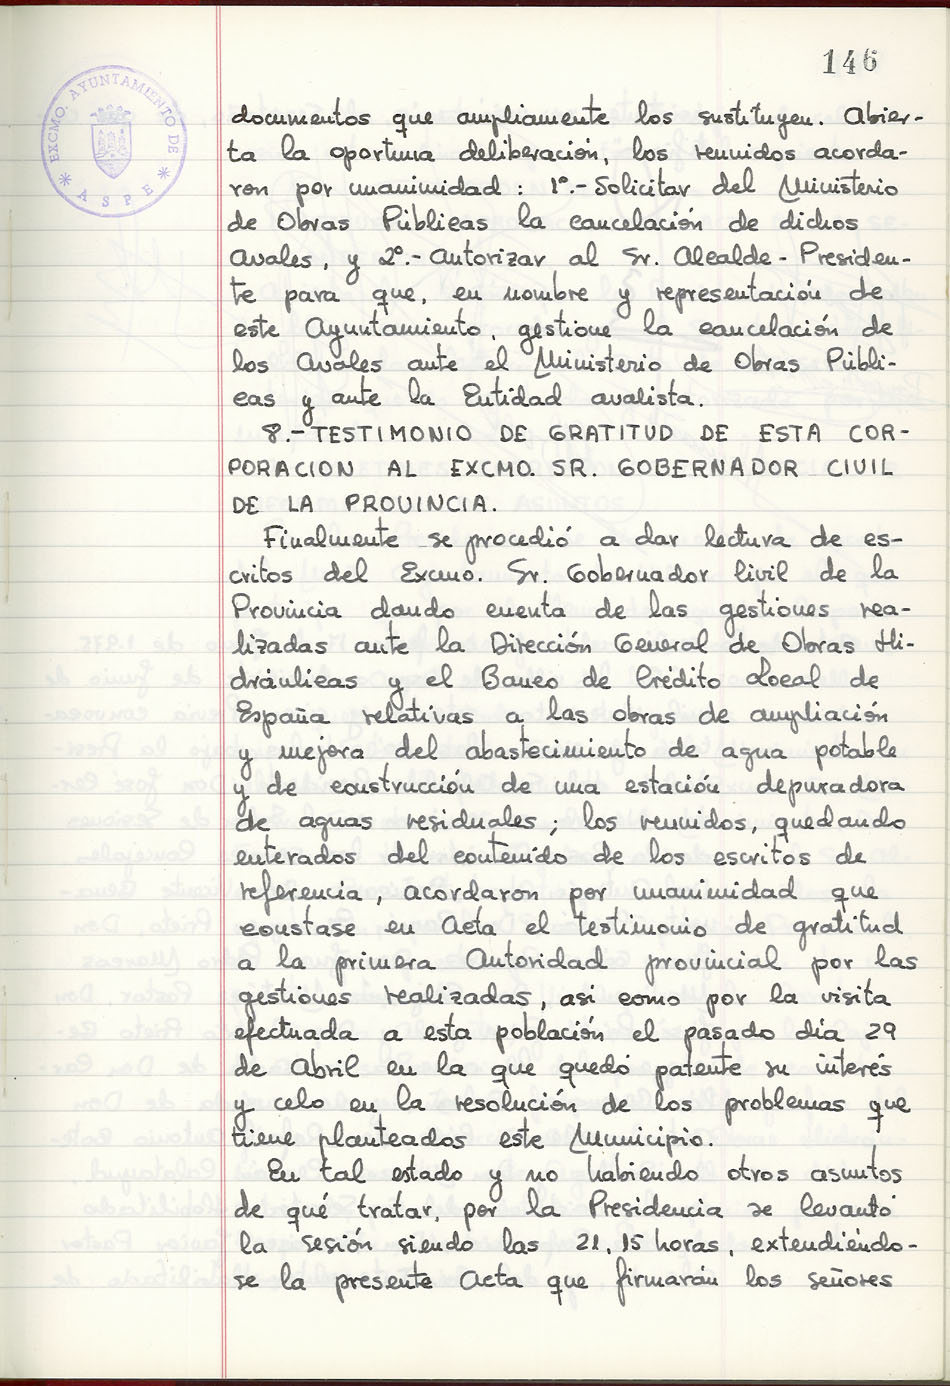 146
EXCMO. AYUNTAMIENTO DE
* ASPE *
documentos que ampliamente los sustituyen. Abier-
ta la oportuna deliberación, los reunidos acorda-
ron por unanimidad: 1º.- Solicitar del Ministerio
de Obras Públicas la cancelación de dichos
Avales, y 2º.- Autorizar al Sr. Alcalde - Presiden-
te para que, en nombre y representación de
este Ayuntamiento, gestione la cancelación de
los Avales ante el Ministerio de Obras Públi-
cas y ante la Entidad avalista.
8.- TESTIMONIO DE GRATITUD DE ESTA COR-
PORACION AL EXCMO. SR. GOBERNADOR CIVIL
DE LA PROVINCIA.
Finalmente se procedió a dar lectura de es-
critos del Excmo. Sr. Gobernador Civil de la
Provincia dando cuenta de las gestiones rea-
lizadas ante la Dirección General de Obras Hi-
dráulicas y el Banco de Crédito Local de
España relativas a las obras de ampliación
y mejora del abastecimiento de agua potable
y de construcción de una estación depuradora
de aguas residuales; los reunidos, quedando
enterados del contenido de los escritos de
referencia, acordaron por unanimidad que
constase en Acta el testimonio de gratitud
a la primera Autoridad provincial por las
gestiones realizadas, asi como por la visita
efectuada a esta población el pasado día 29
de Abril en la que quedó patente su interés
y celo en la resolución de los problemas que
tiene planteados este Municipio.
En tal estado y no habiendo otros asuntos
de qué tratar, por la Presidencia se levantó
la sesión siendo las 21,15 horas, extendiéndo-
se la presente Acta que firmarán los señores